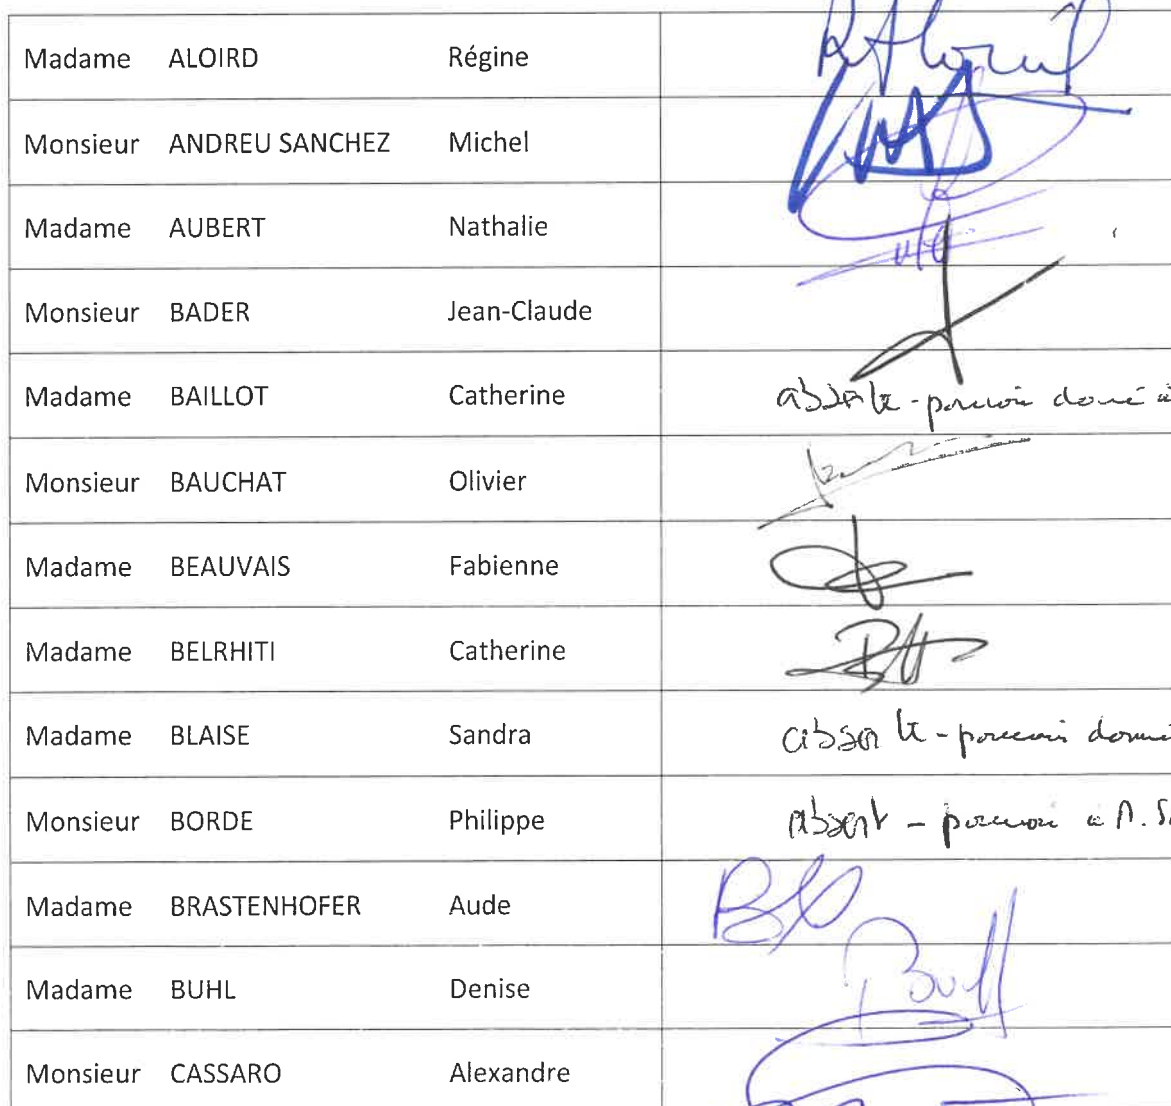 Madame ALOIRD Régine
Monsieur ANDREU SANCHEZ Michel
Madame AUBERT Nathalie
Monsieur BADER Jean-Claude
Madame BAILLOT Catherine absente - pouvoir donné à
Monsieur BAUCHAT Olivier
Madame BEAUVAIS Fabienne
Madame BELRHITI Catherine
Madame BLAISE Sandra absente - pouvoir donné
Monsieur BORDE Philippe absent - pouvoir à M.
Madame BRASTENHOFER Aude
Madame BUHL Denise Buhl
Monsieur CASSARO Alexandre